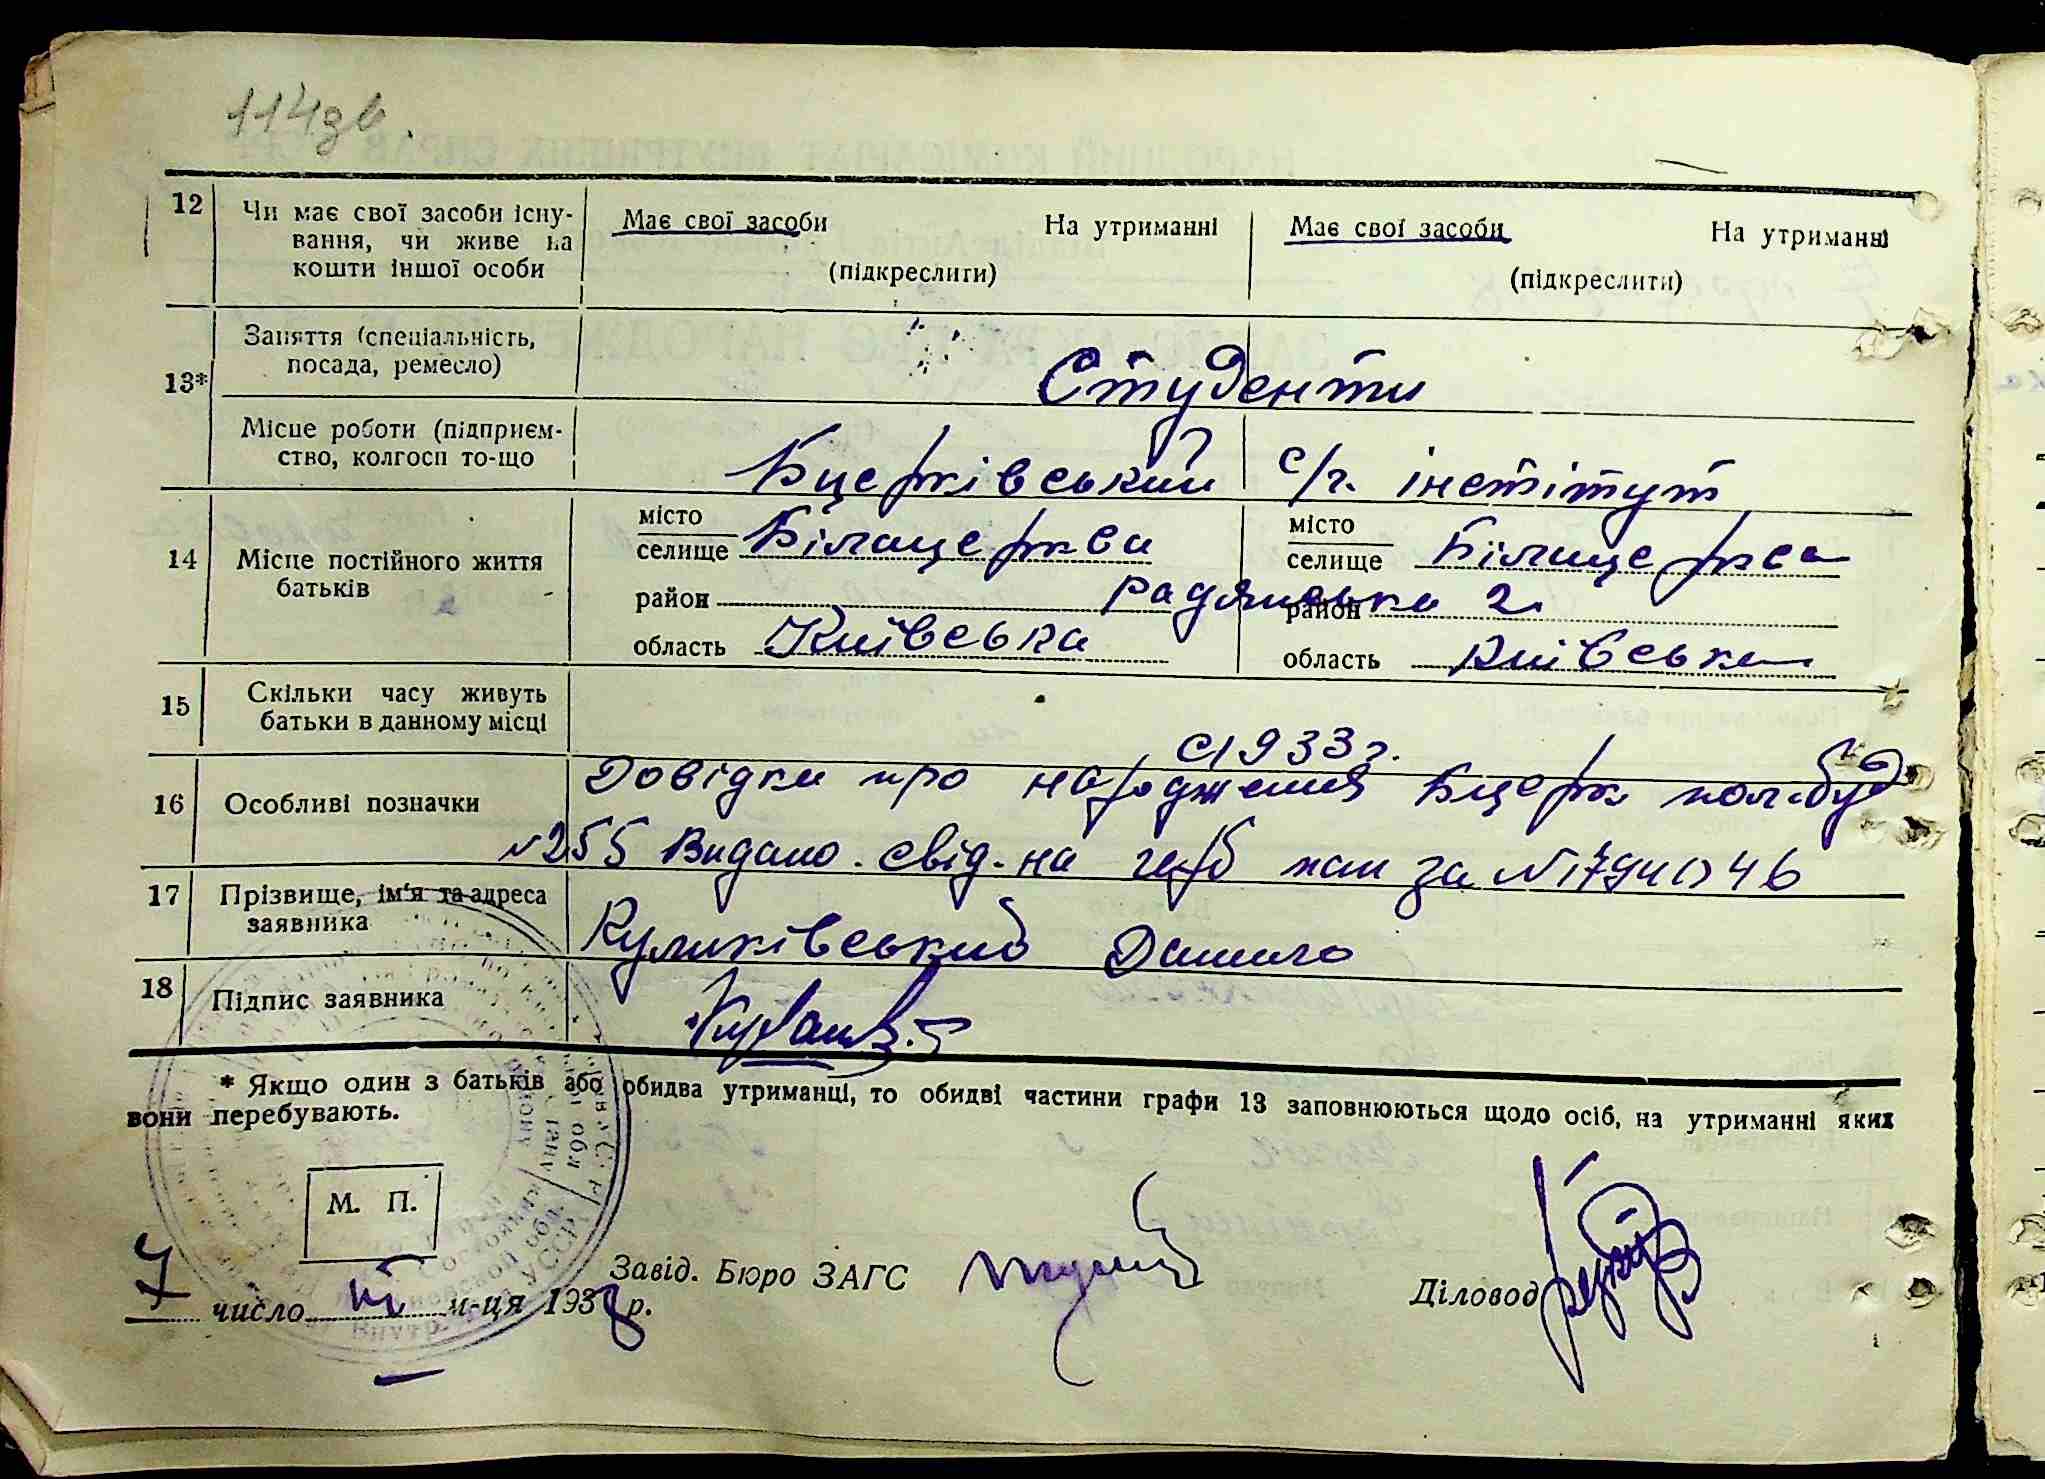 114зв.
12 Чи має свої засоби існу-
вання, чи живе на
кошти іншої особи
Має свої засоби На утриманні
(підкреслити)
Має свої засоби На утриманні
(підкреслити)
13* Заняття (спеціальність,
посада, ремесло)
Студенти
Місце роботи (підприєм-
ство, колгосп то-що
Бцерківський с/г. інстітут
14 Місце постійного життя
батьків
місто
селище Білацерква
район
область Київська
радянська 2
місто
селище Білацерква
район
область Київська
15 Скільки часу живуть
батьки в данному місці
с 1933 г.
16 Особливі позначки
Довідки про народження Бцерк пол.буд
№255 Видано свід. на герб пап за №
17 Прізвище, ім'я та адреса
заявника
Куликівський Данило
18 Підпис заявника
* Якщо один з батьків або обидва утриманці, то обидві частини графи 13 заповнюються щодо осіб, на утриманні яких
вони перебувають.
М. П.
7 число III м-ця 1938 р.
Завід. Бюро ЗАГС
Діловод